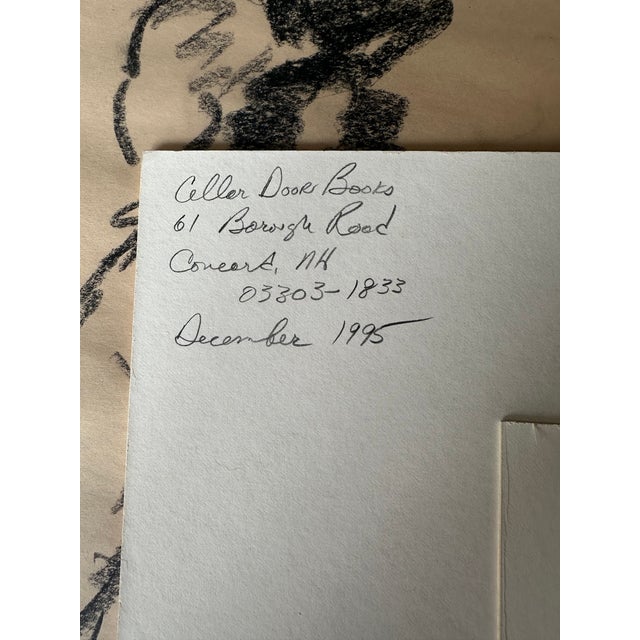 Cellar Door Books
61 Borough Road
Concord, NH
03303-1833
December 1995